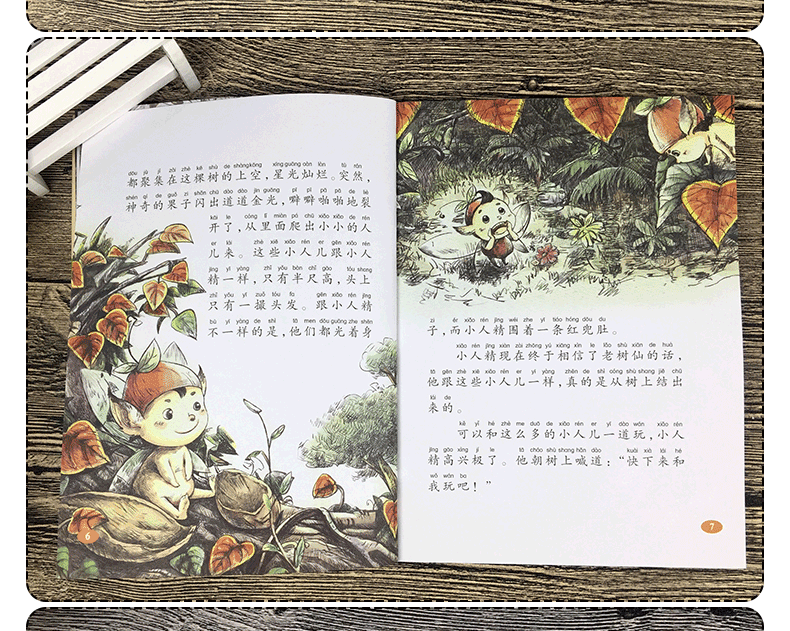 dōu jù jí zài zhè kē shù de shàngkōng xīng guāng càn làn tū rán
都聚集在这棵树的上空，星光灿烂。突然，
shén qí de guǒ zi shǎn chū dào dào jīn guāng pī pī pā pā de liè
神奇的果子闪出道道金光，噼噼啪啪地裂
kāi le cóng lǐ miàn pá chū xiǎo xiǎo de rén
开了，从里面爬出小小的人
er lái zhè xiē xiǎo rén er gēn xiǎo rén
儿来。这些小人儿跟小人
jīng yī yàng zhǐ yǒu bàn chǐ gāo tóu shang
精一样，只有半尺高，头上
zhǐ yǒu yī zuǒ tóu fa gēn xiǎo rén jīng
只有一撮头发。跟小人精
bù yī yàng de shì tā men dōu guāng zhe shēn
不一样的是，他们都光着身
6
zi ér xiǎo rén jīng wéi zhe yī tiáo hóng dōu du
子，而小人精围着一条红兜肚。
xiǎo rén jīng xiàn zài zhōng yú xiāng xìn le lǎo shù xiān de huà
小人精现在终于相信了老树仙的话，
tā gēn zhè xiē xiǎo rén er yī yàng zhēn de shì cóng shù shang jiē chū
他跟这些小人儿一样，真的是从树上结出
lái de
来的。
kě yǐ hé zhè me duō de xiǎo rén er yī dào wán xiǎo rén
可以和这么多的小人儿一道玩，小人
jīng gāo xìng jí le tā cháo shù shang hǎn dào kuài xià lái hé
精高兴极了。他朝树上喊道：“快下来和
wǒ wán ba
我玩吧！”
7